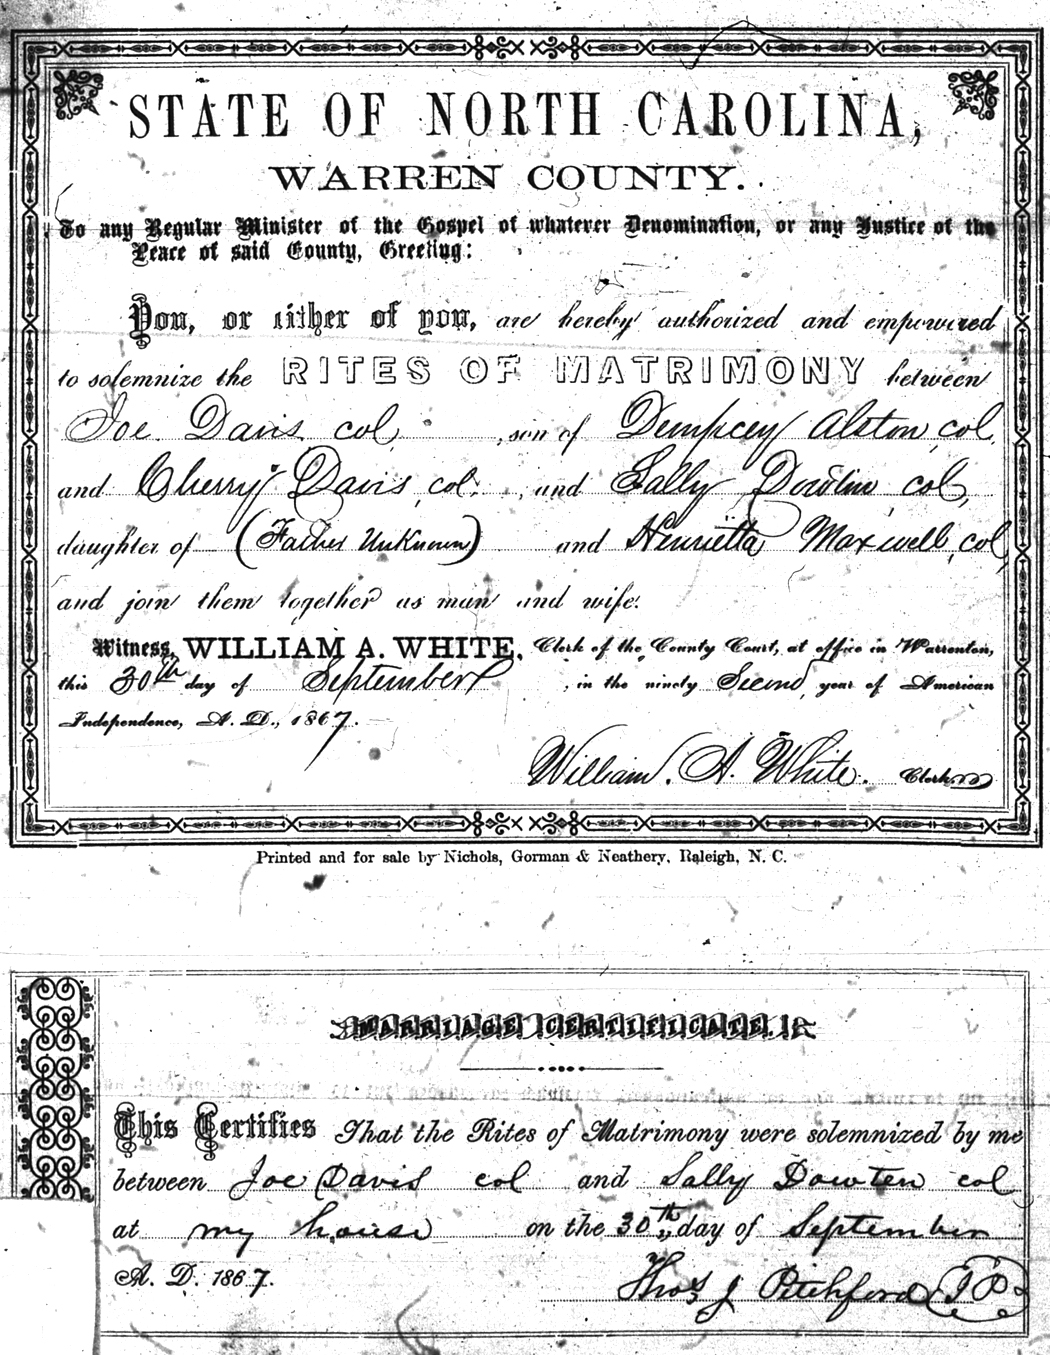 STATE OF NORTH CAROLINA,
WARREN COUNTY.
To any Regular Minister of the Gospel of whatever Denomination, or any Justice of the
Peace of said County, Greeting:
You, or either of you, are hereby authorized and empowered
to solemnize the RITES OF MATRIMONY between
Joe Davis col, son of Dempcey Alston, col,
and Cherry Davis, col. and Sally col,
daughter of (Father UnKnown) and Henrietta Maxwell, col,
and join them together as man and wife.
Witness, WILLIAM A. WHITE, Clerk of the County Court, at office in Warrenton,
this 30th day of September, in the ninety Second, year of American
Independence, A. D., 1867.
William. A. White. Clerk
Printed and for sale by Nichols, Gorman & Neathery, Raleigh, N. C.
MARRIAGE CERTIFICATE.
This Certifies That the Rites of Matrimony were solemnized by me
between Joe Davis col and Sally Dowten col
at my house on the 30th day of September
A. D. 1867.
Thos J Pitchford JP